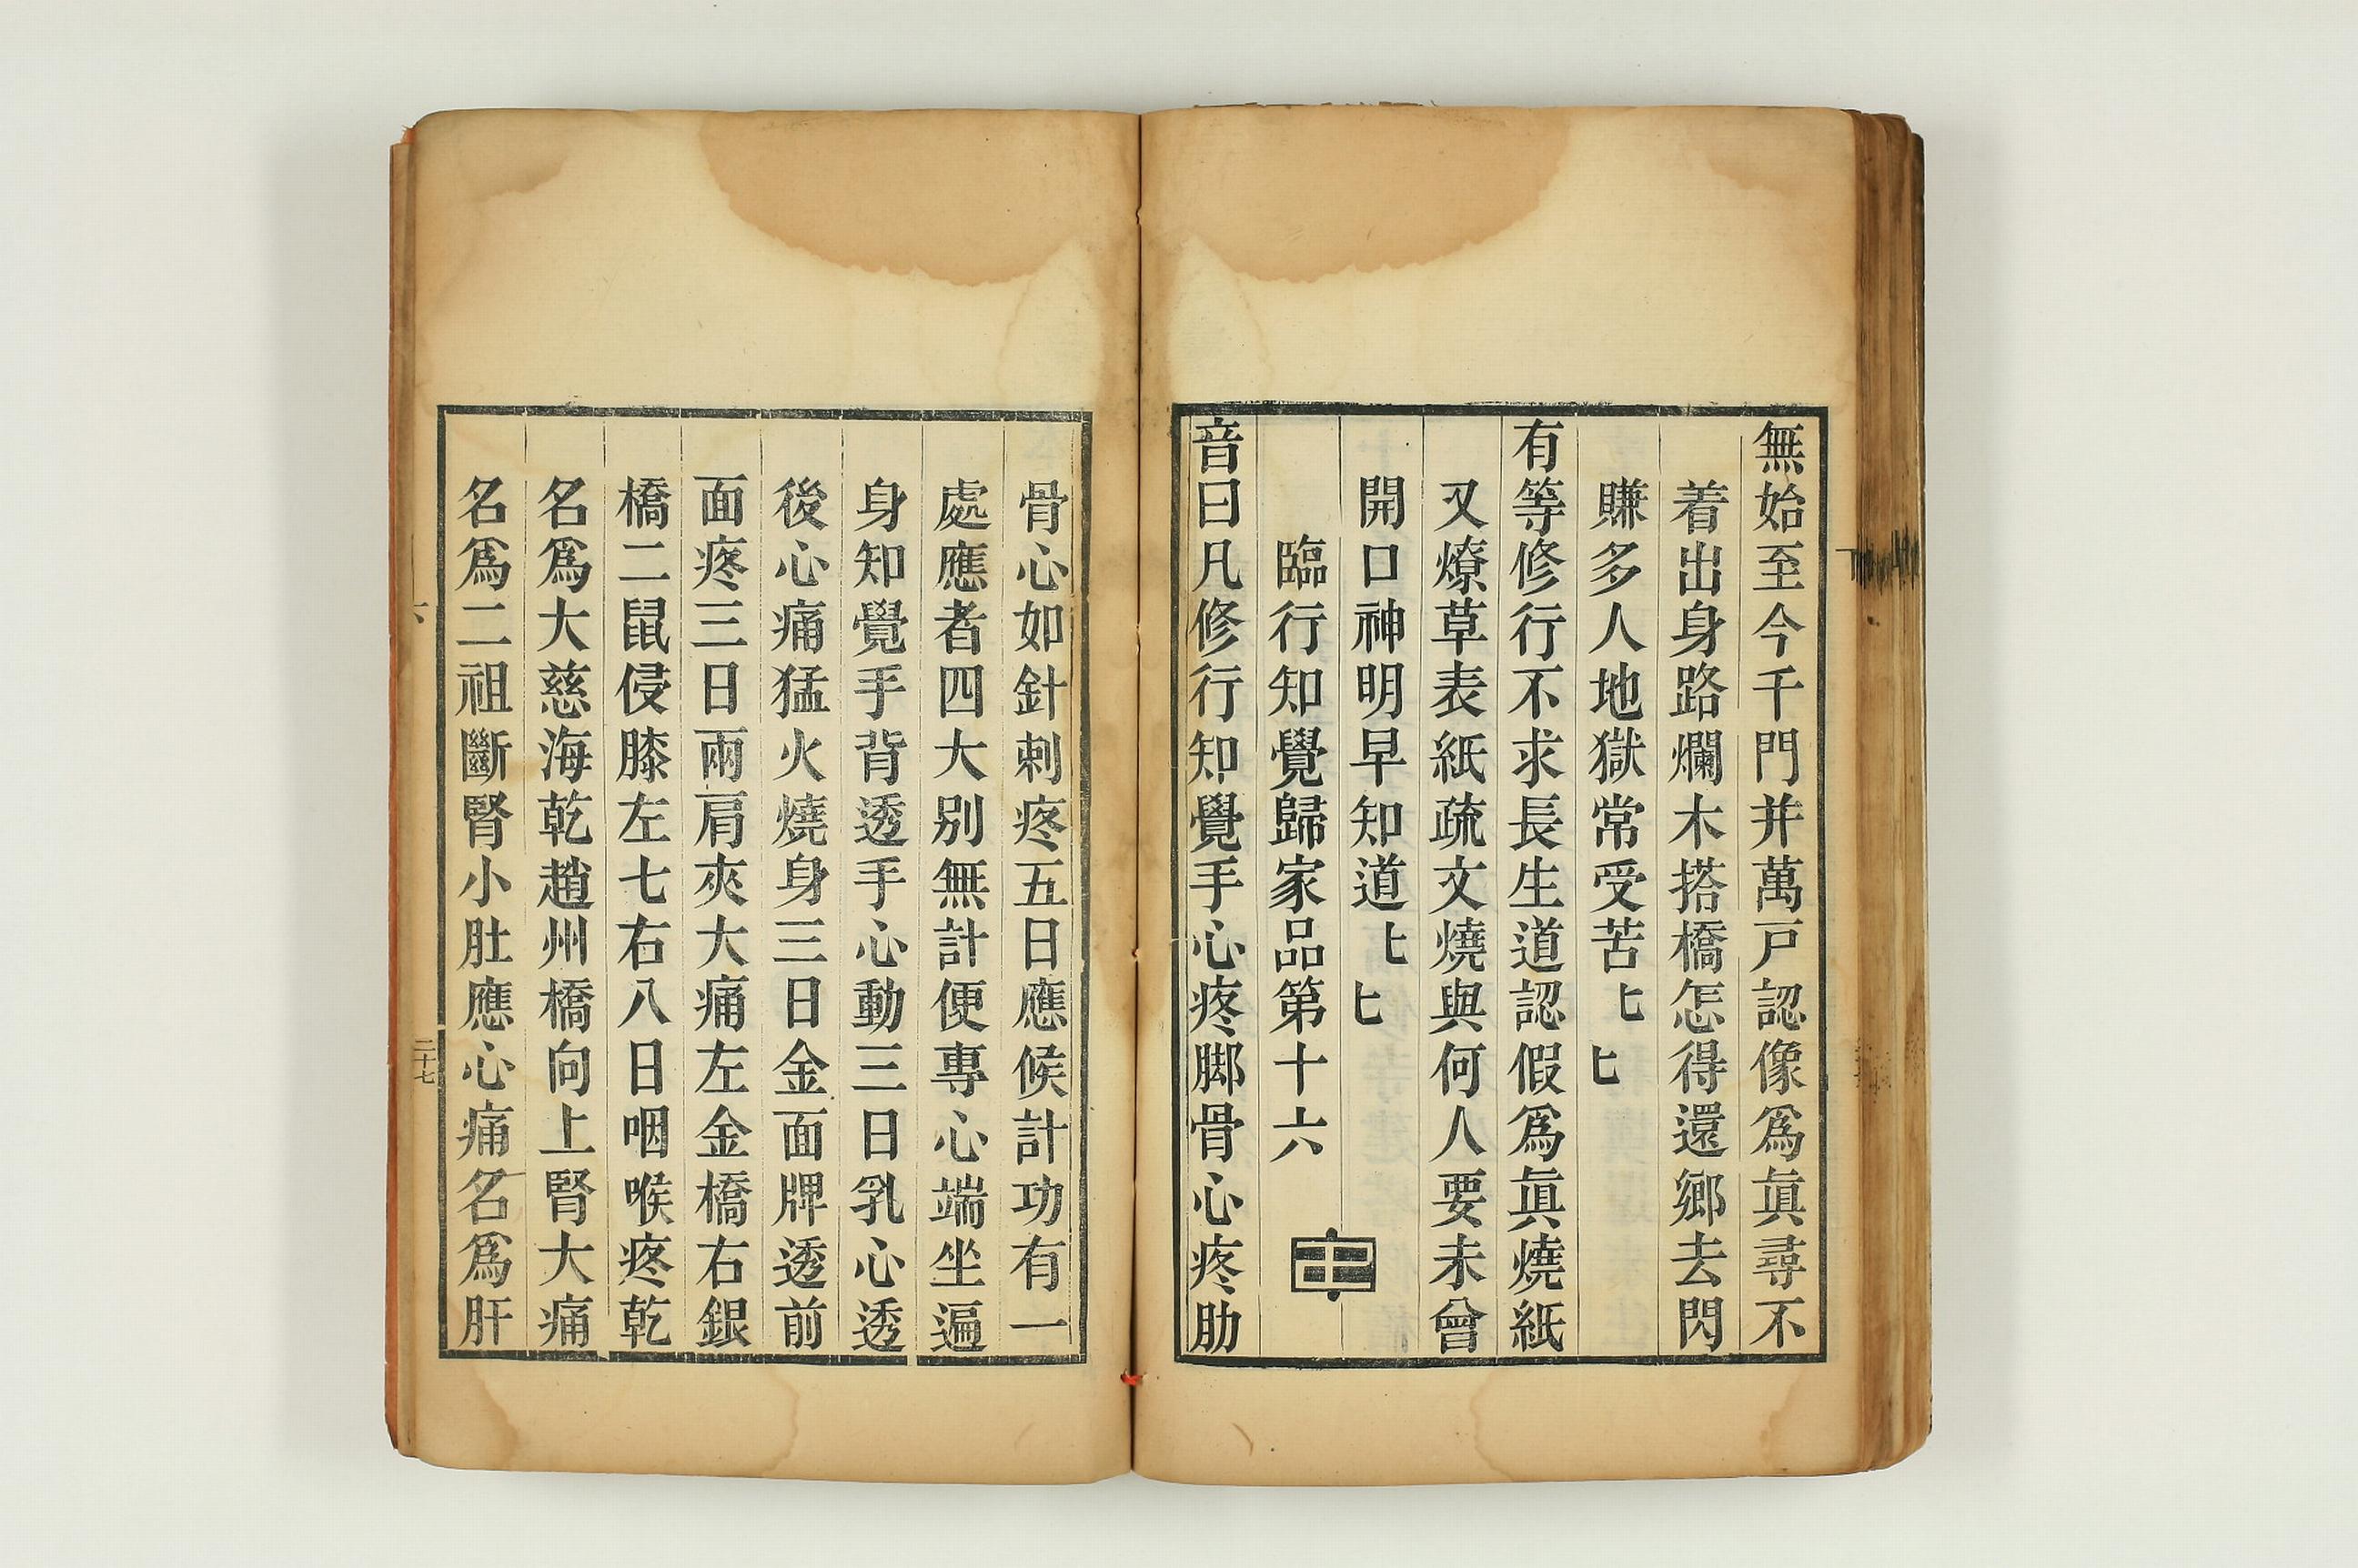 無始至今千門并萬戸認像爲眞尋不
着出身路爛木搭橋怎得還鄉去閃
賺多人地獄常受苦𠃊匕
有等修行不求長生道認假爲眞燒紙
又燎草表紙疏文燒與何人要未曾
開口神明早知道𠃊匕
臨行知覺歸家品第十六
音曰凡修行知覺手心疼脚骨心疼肋
骨心如針刺疼五日應候計功有一
處應者四大别無計便專心端坐遍
身知覺手背透手心動三日乳心透
後心痛猛火燒身三日金面牌透前
面疼三日兩肩夾大痛左金橋右銀
橋二鼠侵膝左七右八日咽喉疼乾
名爲大慈海乾趙州橋向上腎大痛
名爲二祖斷腎小肚應心痛名爲肝
二十七